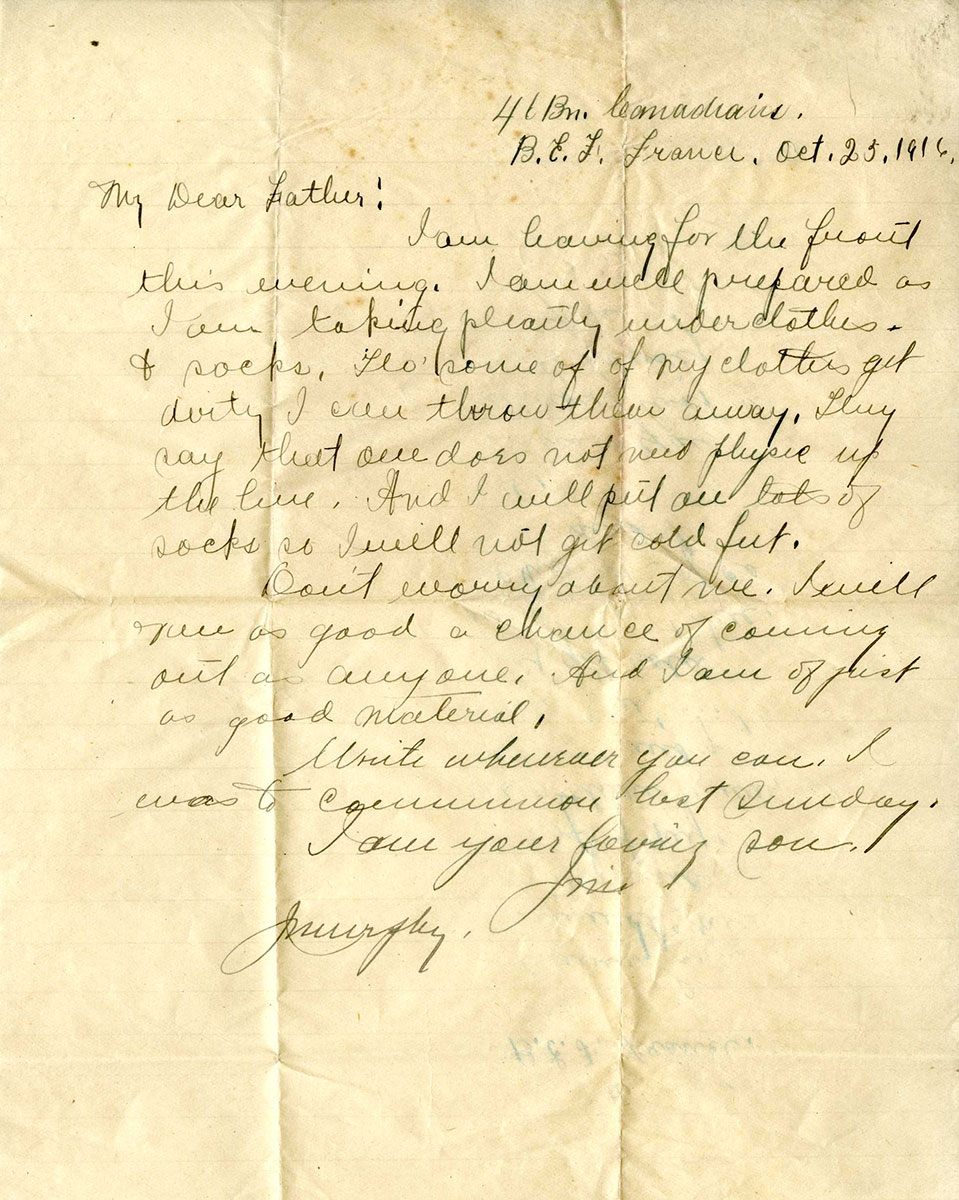 46 Bn. Canadians.
B.E.F. France. Oct. 25. 1916.
My Dear Father!
I am leaving for the front
this evening. I am well prepared as
I am taking pleanty underclothes.
& socks, some of of my clothes get
dirty I can throw them away. They
say that one does not need physic up
the line. And I will put on lots of
socks so I will not get cold feet.
Don't worry about me. I will
run as good a chance of coming
out as anyone. And I am of just
as good material.
Write whenever you can. I
was to communion last Sunday.
I am your loving son.
Jim
JMurphy.
B.E.F. France.